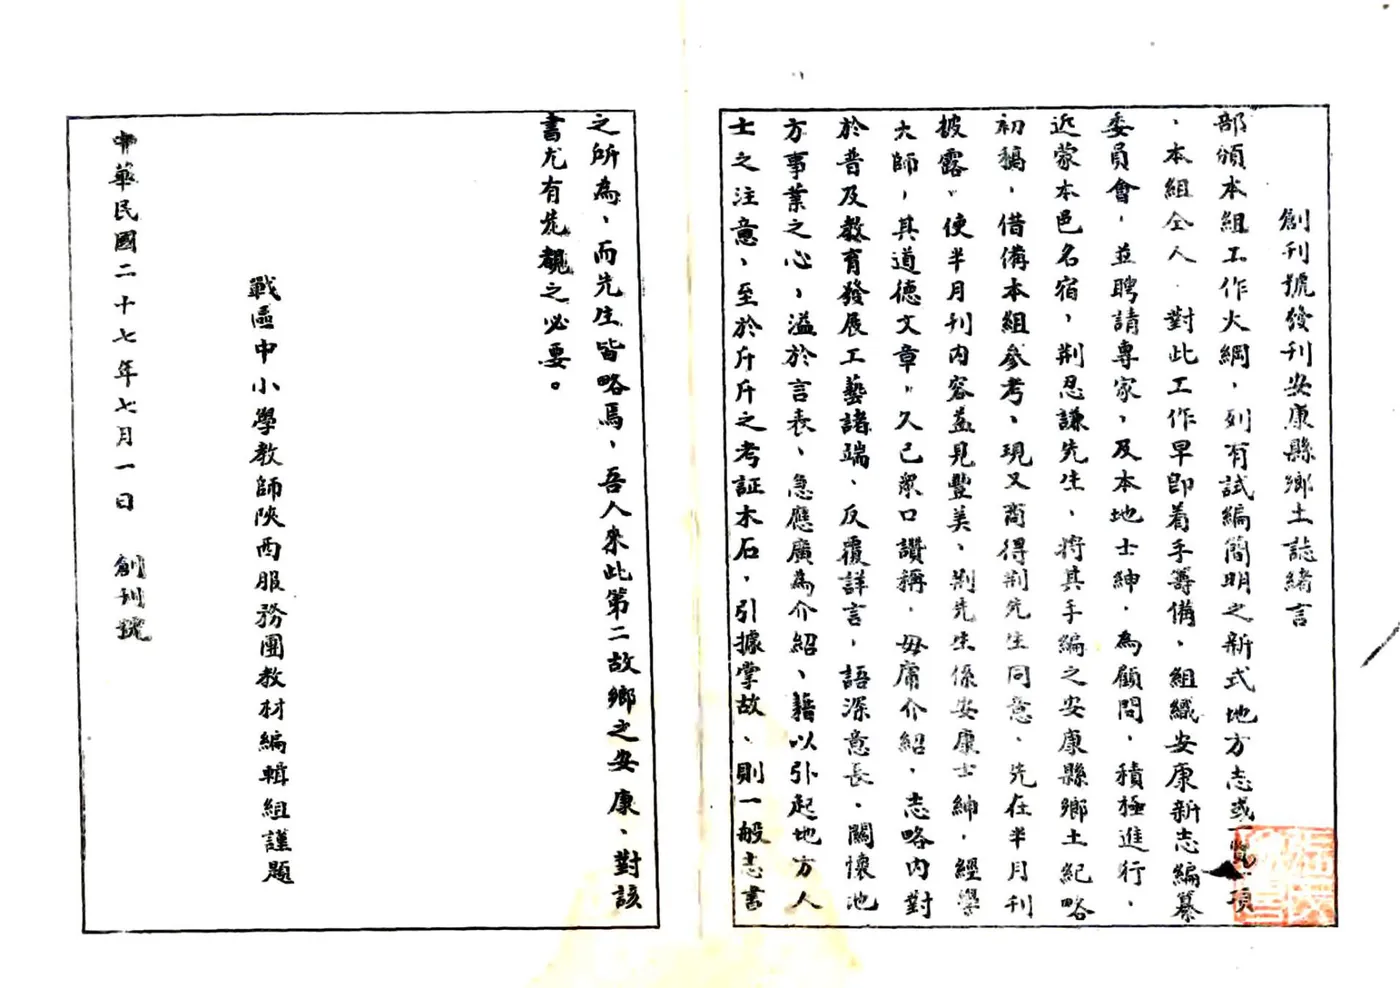 創刊號發刊安康縣鄉土誌緒言
部頒本組工作大綱，列有試編簡明之新式地方志或一覽一項
，本組仝人，對此工作早即着手籌備，組織安康新志編纂
委員會，並聘請專家，及本地士紳，為顧問，積極進行，
近蒙本邑名宿，荆忍謙先生，將其手編之安康縣鄉土紀略
初稿，借備本組參考，現又商得荆先生同意，先在半月刊
披露，使半月刊內容益見豐美，荆先生係安康士紳，經學
大師，其道德文章，久已衆口讚稱，毋庸介紹，志略內對
於普及教育發展工藝諸端，反覆詳言，語深意長，關懷地
方事業之心，溢於言表，急應廣為介紹，藉以引起地方人
士之注意，至於斤斤之考証木石，引據掌故，則一般志書
之所為，而先生皆略焉，吾人來此第二故鄉之安康，對該
書尤有先覩之必要。
戰區中小學教師陝西服務團教材編輯組謹題
中華民國二十七年七月一日 創刊號